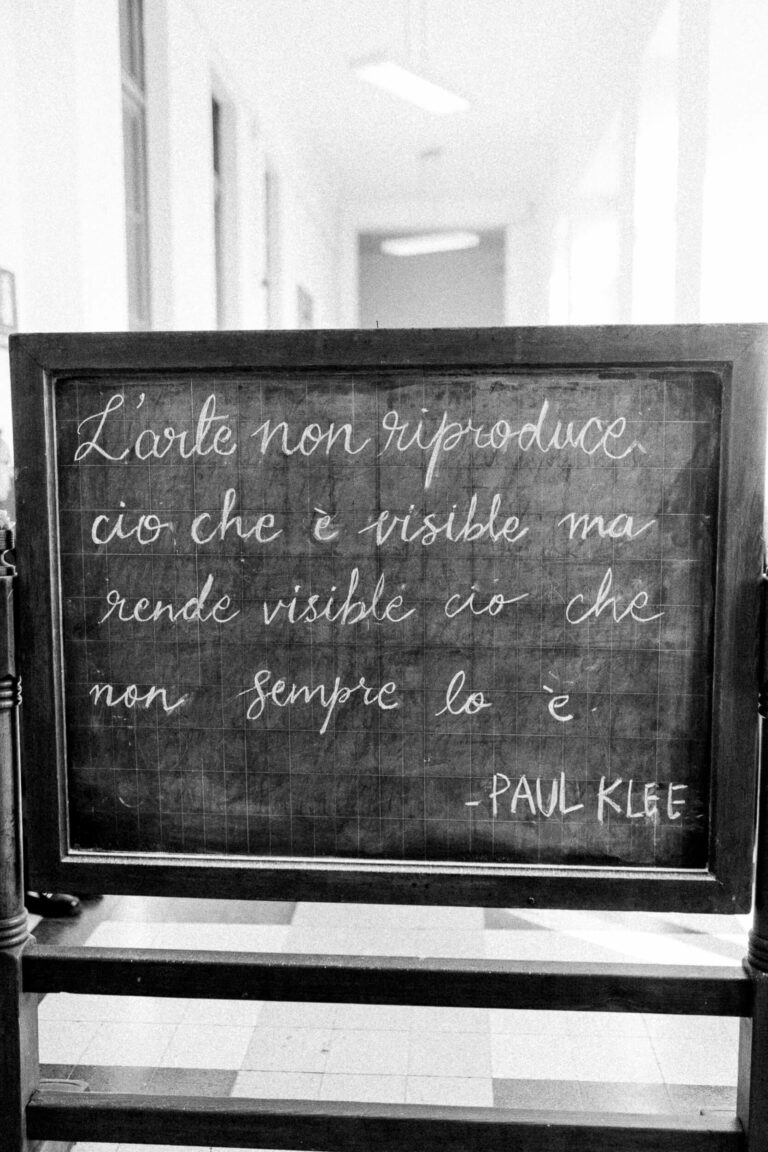 L'arte non riproduce
cio che è visibile ma
rende visibile cio che
non sempre lo è.
-PAUL KLEE